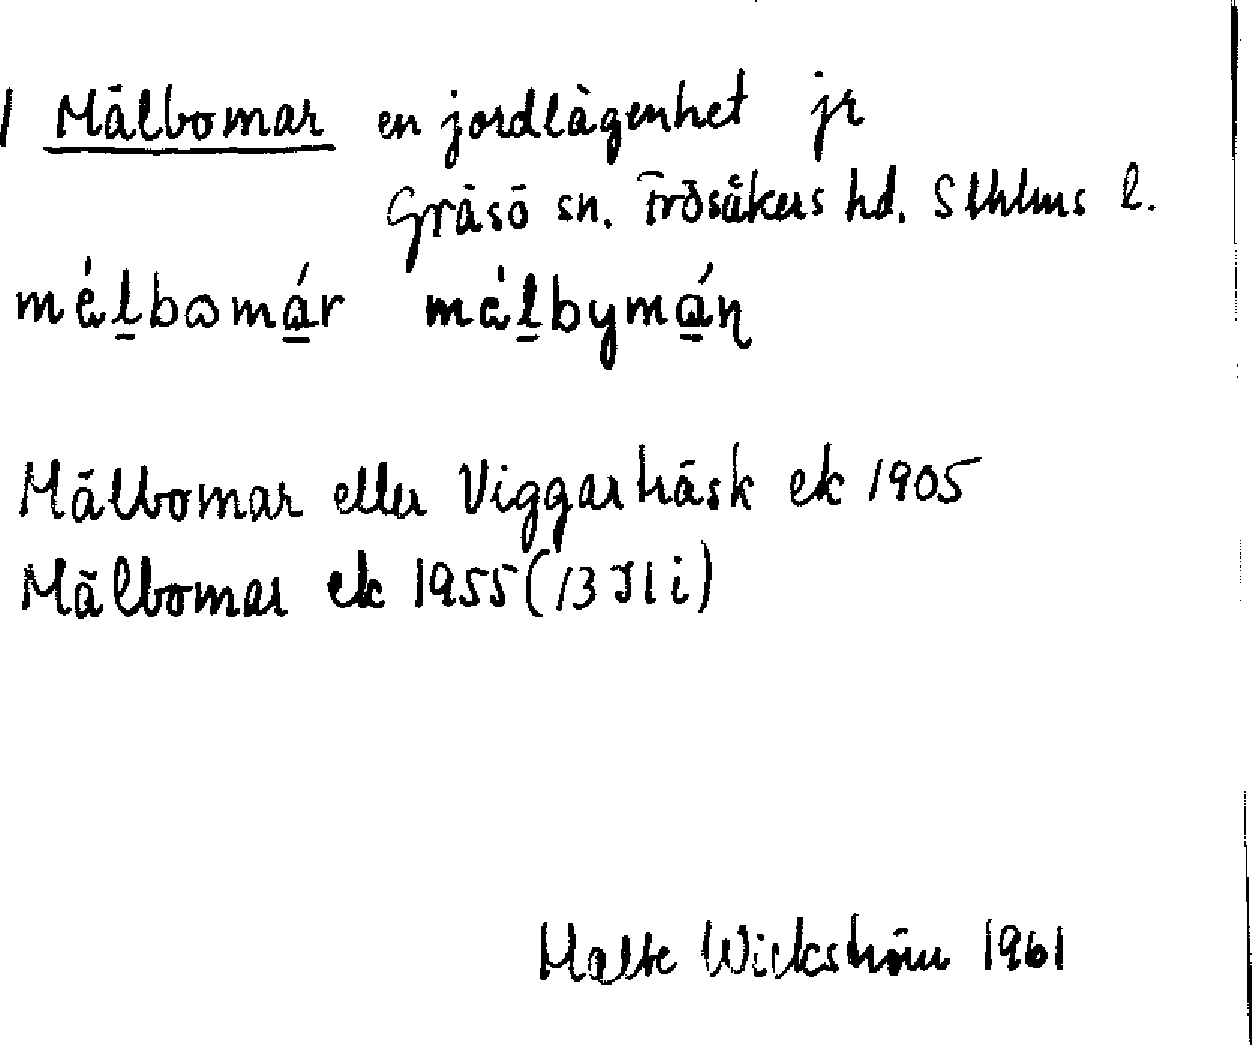 Mälbomar en jordlägenhet jr
Gräsö sn. Frösåkers hd. Sthlms l.
Mälbomar eller Viggarträsk ek 1905
Mälbomar ek 1955 (13 I 1 i)
Malte Wickström 1961